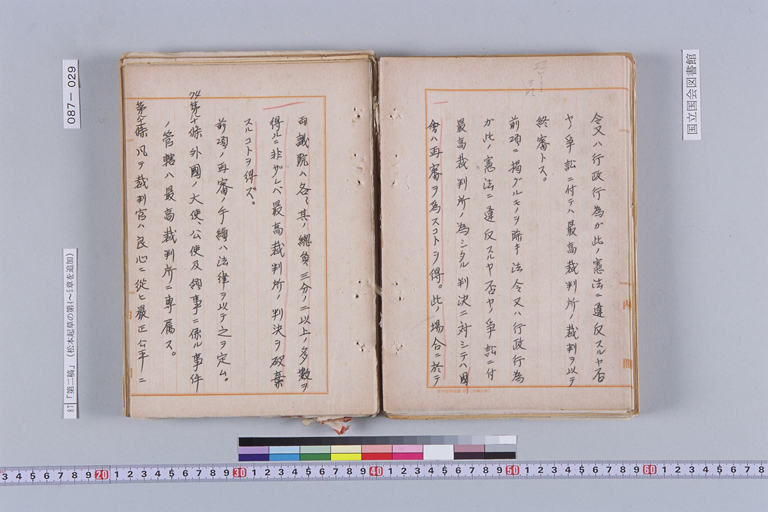 令又ハ行政行為カ此ノ憲法ニ違反スルヤ否
ヤノ争訟ニ付テハ最高裁判所ノ裁判ヲ以テ
終審トス。
前項ニ掲グルモノヲ除キ法令又ハ行政行為
カ此ノ憲法ニ違反スルヤ否ヤノ争訟ニ付
最高裁判所ノ為シタル判決ニ対シテハ國
會ハ再審ヲ為スコトヲ得。此ノ場合ニ於テ
両議院ハ各〻其ノ總員三分ノ二以上ノ多數ヲ
得ルニ非ザレバ最高裁判所ノ判決ヲ破棄
スルコトヲ得ズ。
前項ノ再審ノ手續ハ法律ヲ以テ之ヲ定ム。
外國ノ大使、公使及領事ニ係ル事件
ノ管轄ハ最高裁判所ニ専属ス。
凡テ裁判官ハ良心ニ従ヒ厳正公平ニ
国立国会図書館
087-029
87 「第二稿」(松本起草の第1~5章を追加)
3 4 5 6 7 8 9 20 1 2 3 4 5 6 7 8 9 30 1 2 3 4 5 6 7 8 9 40 1 2 3 4 5 6 7 8 9 50 1 2 3 4 5 6 7 8 9 60 1 2 3 4 5 6 7 8